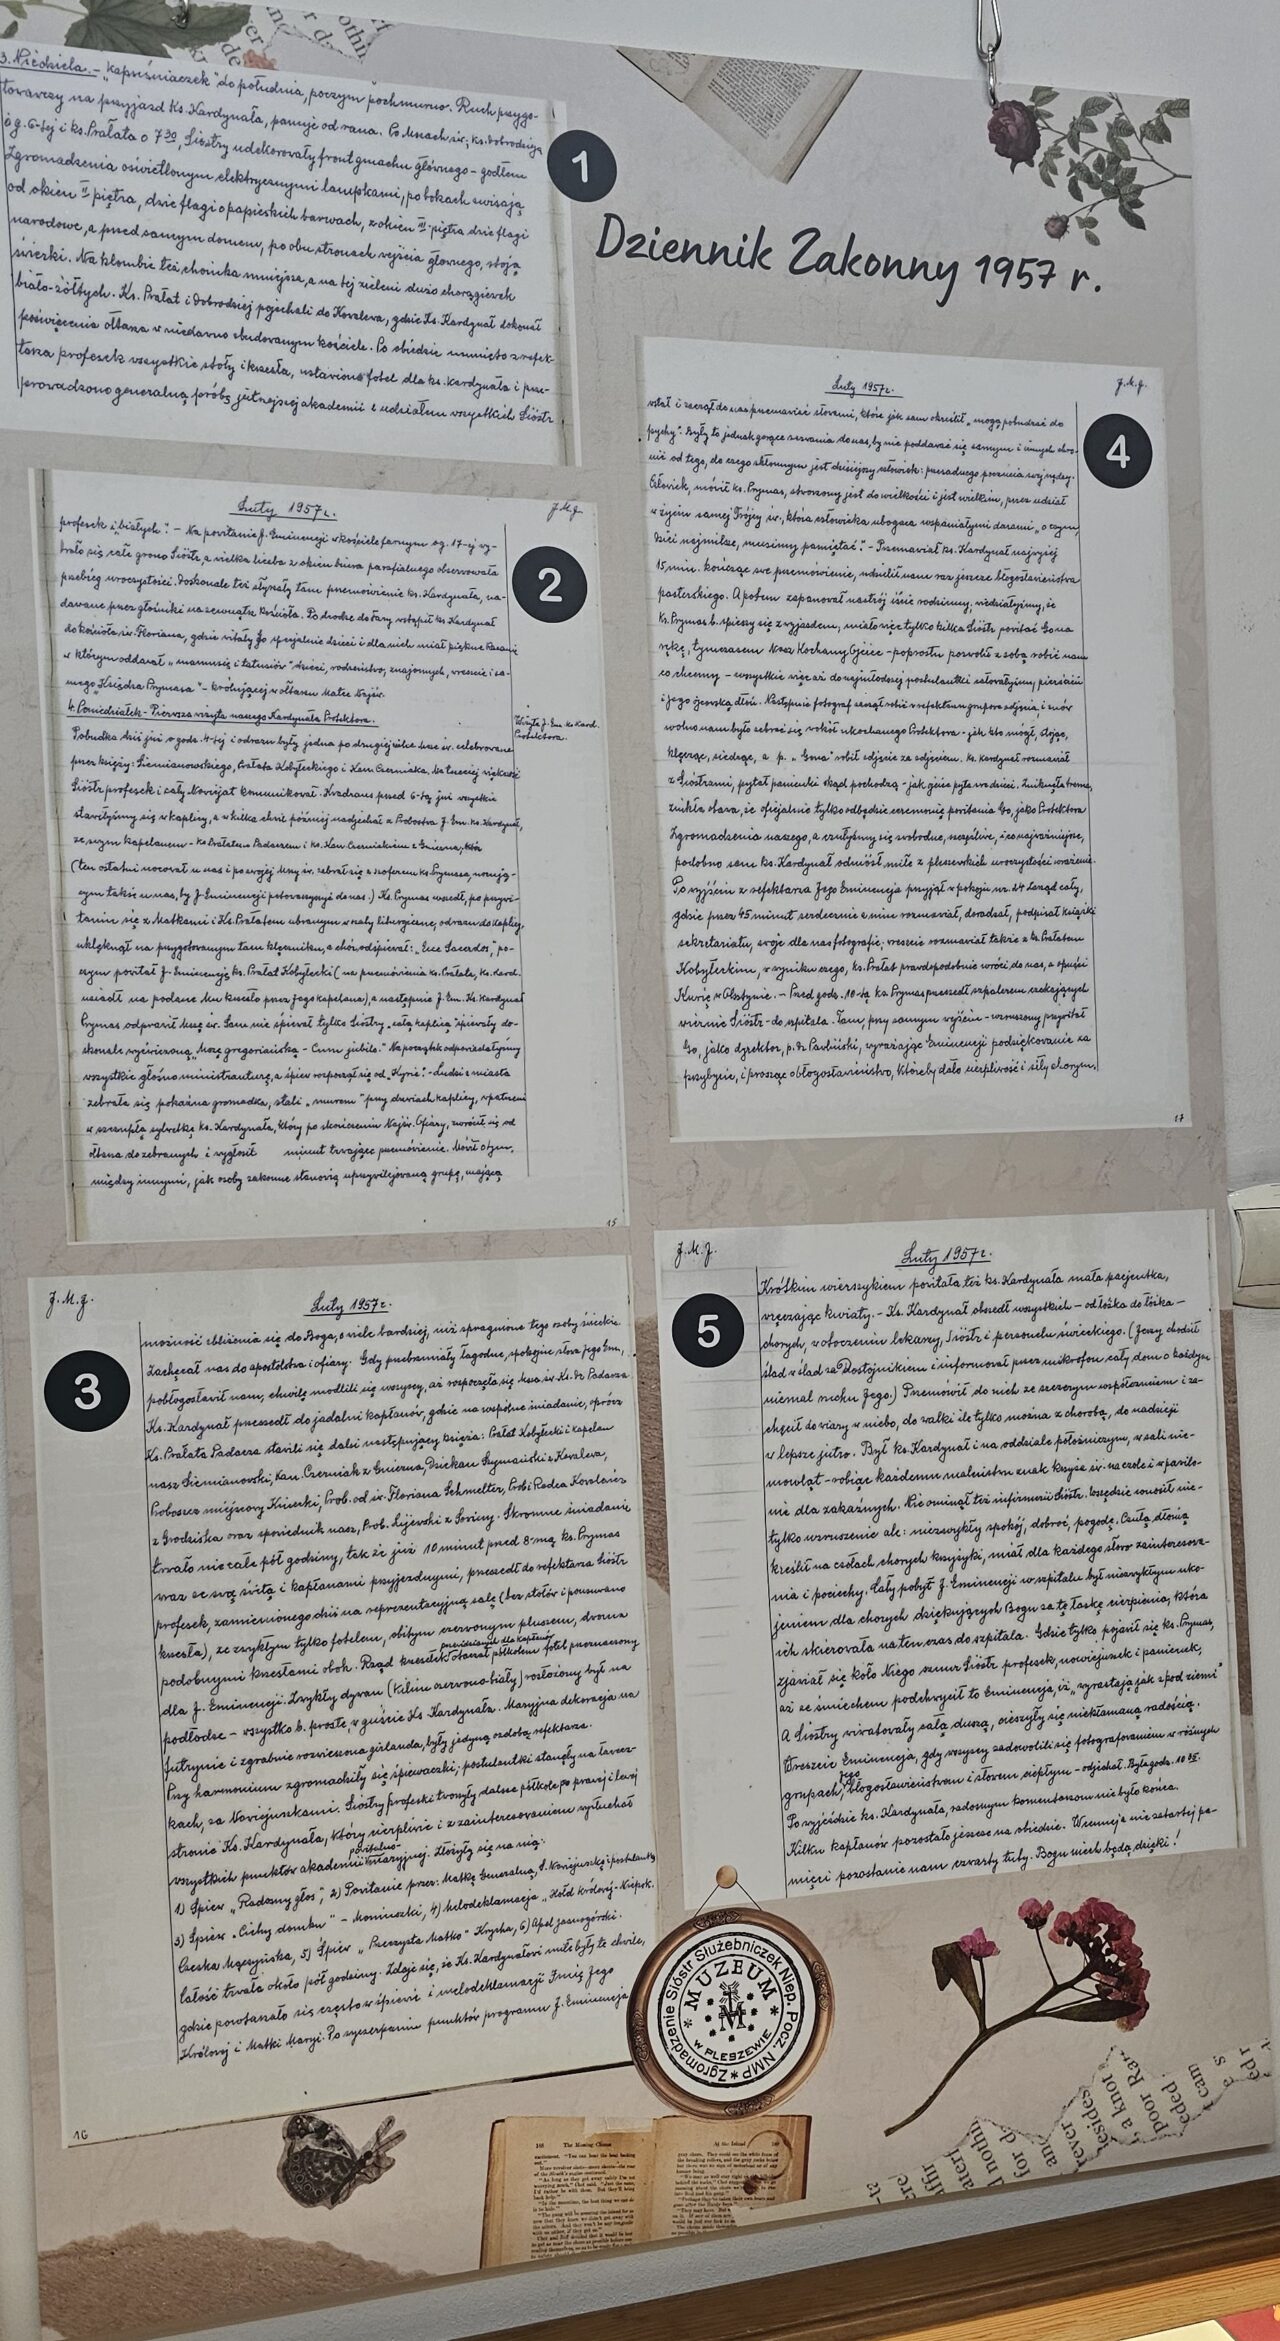 Dziennik Zakonny 1957 r.
1
3. Niedziela. – „Kapuśniaczek" do południa, poczym pochmurno. Ruch przygo-
towawczy na przyjazd Ks. Kardynała, panuje od rana. Po Mszach św., ks. Dobrodzieja
o g. 6-tej i ks. Prałata o 7³⁰, Siostry udekorowały front gmachu głównego – godłem
Zgromadzenia oświetlonym elektrycznymi lampkami, po bokach zwisają
od okien II piętra, dwie flagi o papieskich barwach, z okien III piętra dwie flagi
narodowe, a przed samym domem, po obu stronach wejścia głównego, stoją
świerki. Na klombie też choinka mniejsza, a na tej zieleni dużo chorągiewek
biało-żółtych. Ks. Prałat i Dobrodziej pojechali do Kowalewa, gdzie Ks. Kardynał dokonał
poświęcenia ołtarza w niedawno zbudowanym kościele. Po obiedzie usunięto z refek-
tarza profesek wszystkie stoły i krzesła, ustawiono fotel dla ks. kardynała i prze-
prowadzono generalną próbę jutrzejszej akademii z udziałem wszystkich Sióstr
2
Luty 1957 r.
J.M.J.
profesek i „białych". – Na powitanie J. Eminencji w kościele farnym o g. 17-ej wy-
brało się całe grono Sióstr, a wielka liczba z okien biura parafialnego obserwowała
przebieg uroczystości. Doskonale też słyszały tam przemówienie ks. Kardynała, na-
dawane przez głośniki na zewnątrz kościoła. Po drodze do fary wstąpił ks. Kardynał
do kościoła św. Floriana, gdzie witały Go specjalnie dzieci i dla nich miał piękne kazanie
w którym oddawał „mamusię i tatusiów" dzieci, rodzeństwo, znajomych, wreszcie i sa-
mego „Księdza Prymasa" – królującej w ołtarzu Matce Najśw.
4. Poniedziałek – Pierwsza wizyta naszego Kardynała Protektora.
Wizyta J. Em. ks. Kard.
Protektora.
Pobudka dziś już o godz. 4-tej i od razu były jedna po drugiej ciche Msze św. celebrowane
przez księży: Siemianowskiego, Prałata Kobyłeckiego i Kan. Czerniaka. Na trzeciej większość
Sióstr profesek i cały Nowicjat komunikował. Kwadrans przed 6-tą już wszystkie
stawiłyśmy się w kaplicy, a w kilka chwil później nadjechał z Probostwa J. Em. ks. Kardynał,
ze swym kapelanem – ks. Prałatem Padaczem i ks. Kan. Czerniakiem z Gniezna, który
(ten ostatni nocował u nas i po swojej Mszy św. zabrał się z szoferem ks. Prymasa, nocują-
cym także u nas, by J. Eminencji potowarzyszyć do nas.) Ks. Prymas wszedł, po przywi-
taniu się z Matkami i Ks. Prałatem ubranym w szaty liturgiczne, od razu do kaplicy,
ukląknął na przygotowanym tam klęczniku, a chór odśpiewał: „Ecce Sacerdos", po-
czym powitał J. Eminencję ks. Prałat Kobyłecki (na przemówienia ks. Prałata, ks. Kard.
usiadł na podane Mu krzesło przez Jego kapelana), a następnie J. Em. Ks. Kardynał
Prymas odprawił Mszę św. Sam nie śpiewał tylko Siostry „całą kaplicą" śpiewały do-
skonale wyćwiczoną „Mszę gregoriańską – Cum jubilo." Na początek odpowiadałyśmy
wszystkie głośno ministranturę, a śpiew rozpoczął się od „Kyrie". – Ludzi z miasta
zebrała się pokaźna gromadka, stali „murem" przy drzwiach kaplicy, wpatrzeni
w szczupłą sylwetkę ks. Kardynała, który po skończeniu Najśw. Ofiary, zwrócił się od
ołtarza do zebranych i wygłosił minut trwające przemówienie. Mówił o tym,
między innymi, jak osoby zakonne stanowią uprzywilejowaną grupę, mającą
15
3
J.M.J.
Luty 1957 r.
możność zbliżenia się do Boga, o wiele bardziej, niż spragnione tego osoby świeckie.
Zachęcał nas do apostolstwa i ofiary. Gdy przebrzmiały łagodne, spokojne słowa Jego Em.,
pobłogosławił nam, chwilę modlili się wszyscy, aż rozpoczęła się Msza św. Ks. Dr Padacza
Ks. Kardynał przeszedł do jadalni kapłanów, gdzie na wspólne śniadanie, oprócz
Ks. Prałata Padacza stawili się dalsi następujący księża: Prałat Kobyłecki i kapelan
nasz Siemianowski, Kan. Czerniak z Gniezna, Dziekan Szymański z Kowalewa,
Proboszcz miejscowy Knuerki, Prob. od św. Floriana Schmelter, Prob. i Radca Koralewicz
z Grodziska oraz spowiednik nasz, Prob. Lijewski z Soviny. Skromne śniadanie
trwało nie całe pół godziny, tak że już 10 minut przed 8-mą ks. Prymas
wraz ze swą świtą i kapłanami przyjezdnymi, przeszedł do refektarza Sióstr
profesek, zamienionego dziś na reprezentacyjną salę (bez stołów i posuwano
krzesła), ze zwykłym tylko fotelem, obitym czerwonym pluszem, dwoma
podobnymi krzesłami obok. Rząd krzesełek przeznaczonych dla kapłanów otaczał półkolem fotel przeznaczony
dla J. Eminencji. Zwykły dywan (kilim czerwono-biały) rozłożony był na
podłodze – wszystko b. proste, w guście Ks. Kardynała. Maryjna dekoracja na
futrynie i zgrabnie rozwieszona girlanda, były jedyną ozdobą refektarza.
Przy harmonium zgromadziły się śpiewaczki; postulantki stanęły na ławecz-
kach, za Nowicjuszkami. Siostry profeski tworzyły dalsze półkole po prawej i lewej
stronie Ks. Kardynała, który cierpliwie i z zainteresowaniem wysłuchał
wszystkich punktów akademii powitalno-maryjnej. Złożyły się na nią:
1) Śpiew „Radosny głos", 2) Powitanie przez: Matkę Generalną, S. Nowicjuszkę i postulantkę
3) Śpiew „Cichy domku" – Moniuszki, 4) Melodeklamacja „Hołd Królowej – Niepok.
Czeska Męczyńska, 5) Śpiew „Przeczysta Matko" – Krycha, 6) Apel jasnogórski.
Całość trwała około pół godziny. Zdaje się, że Ks. Kardynałowi miłe były te chwile,
gdzie powtarzało się często w śpiewie i melodeklamacji Imię Jego
Królowej i Matki Maryi. Po wyczerpaniu punktów programu J. Eminencja
16
4
Luty 1957 r.
J.M.J.
wstał i zaczął do nas przemawiać słowami, które jak sam określił „mogą pobudzać do
pychy". Były to jednak gorące wezwania do nas, by nie poddawać się samym i innych chro-
nić od tego, do czego skłonnym jest dzisiejszy człowiek: przesadnego poczucia swej nędzy.
Człowiek, mówił ks. Prymas, stworzony jest do wielkości i jest wielkim, przez udział
w życiu samej Trójcy św., która człowieka ubogaca wspaniałymi darami „o czym,
dzieci najmilsze, musimy pamiętać". – Przemawiał ks. Kardynał najwyżej
15 min. kończąc swe przemówienie, udzielił nam raz jeszcze błogosławieństwa
pasterskiego. A potem zapanował nastrój iście rodzinny, wiedziałyśmy, że
Ks. Prymas b. spieszy się z wyjazdem, miało więc tylko kilka Sióstr powitać Go na
rękę, tymczasem Nasz Kochany Ojciec – poprostu pozwolił z sobą robić nam
co chcemy – wszystkie więc aż do najmłodszej postulantki całowałyśmy, pierścień
i Jego ojcowską dłoń. Następnie fotograf zaczął robić w refektarzu grupowe zdjęcia, i znów
wolno nam było zebrać się wokół ukochanego Protektora – jak kto mógł, stojąc,
klęcząc, siedząc, a p. „Gena" robił zdjęcie za zdjęciem. Ks. Kardynał rozmawiał
z Siostrami, pytał panienki skąd pochodzą – jak ojciec pyta swe dzieci. Zniknęła trema,
znikła obawa, że oficjalnie tylko odbędzie ceremonię powitania Go, jako Protektora
Zgromadzenia naszego, a czułyśmy się swobodne, szczęśliwe, i co najważniejsze,
podobno sam ks. Kardynał odniósł miłe z pleszewskich uroczystości wrażenie.
Po wyjściu z refektarza Jego Eminencja przyjął w pokoju nr. 24 Zarząd cały,
gdzie przez 45 minut serdecznie z nim rozmawiał, doradzał, podpisał książki
sekretariatu, swoje dla nas fotografie; wreszcie rozmawiał także z ks. Prałatem
Kobyłeckim, w wyniku czego, ks. Prałat prawdopodobnie wróci do nas, a opuści
Kurię w Olsztynie. – Przed godz. 10-tą ks. Prymas przeszedł szpalerem czekających
wiernie Sióstr – do szpitala. Tam, przy samym wejściu – wzruszony przywitał
Go, jako dyrektor, p. dr Pawliński, wyrażając Eminencji podziękowanie za
przybycie, i prosząc o błogosławieństwo, któreby dało cierpliwość i siły chorym.
17
5
J.M.J.
Luty 1957 r.
Krótkim wierszykiem powitała też ks. Kardynała mała pacjentka,
wręczając kwiaty. – Ks. Kardynał obszedł wszystkich – od łóżka do łóżka –
chorych, w otoczeniu lekarzy, Sióstr i personelu świeckiego. (Jerzy chodził
ślad w ślad za Dostojnikiem i informował przez mikrofon cały dom o każdym
niemal kroku Jego.) Przemówił do nich ze szczerym współczuciem i za-
chęcił do wiary w niebo, do walki ile tylko można z chorobą, do nadziei
w lepsze jutro. Był ks. Kardynał i na oddziale położniczym, w sali nie-
mowląt – robiąc każdemu maleństwu znak krzyża św. na czole i w pawilo-
nie dla zakaźnych. Nie ominął też infirmerii Sióstr. Wszędzie wnosił nie-
tylko wzruszenie ale: niezwykły spokój, dobroć, pogodę. Czułą dłonią
kreślił na czołach chorych krzyżyki, miał dla każdego słowo zainteresowa-
nia i pociechy. Cały pobyt J. Eminencji w szpitalu był niezwykłym uko-
jeniem dla chorych dziękujących Bogu za tę łaskę cierpienia, która
ich skierowała na ten czas do szpitala. Gdzie tylko pojawił się ks. Prymas,
zjawiał się koło Niego sznur Sióstr profesek, nowicjuszek i panienek,
aż ze śmiechem podchwycił to Eminencja, iż „wyrastają jak spod ziemi"
A Siostry wiwatowały całą duszą, cieszyły się niekłamaną radością.
Wreszcie Eminencja, gdy wszyscy zadowolili się fotografowaniem w różnych
grupach, Jego błogosławieństwem i słowem ciepłym – odjechał. Była godz. 10³⁵.
Po wyjeździe ks. Kardynała, radosnym komentarzom nie było końca.
Kilku kapłanów pozostało jeszcze na obiedzie. W umyśle nie zatartej pa-
mięci pozostanie nam czwarty luty. Bogu niech będą dzięki!
Zgromadzenie Sióstr Służebniczek Niep. Pocz. NMP
MUZEUM
W PLESZEWIE
168 The Missing Chums
At the Island